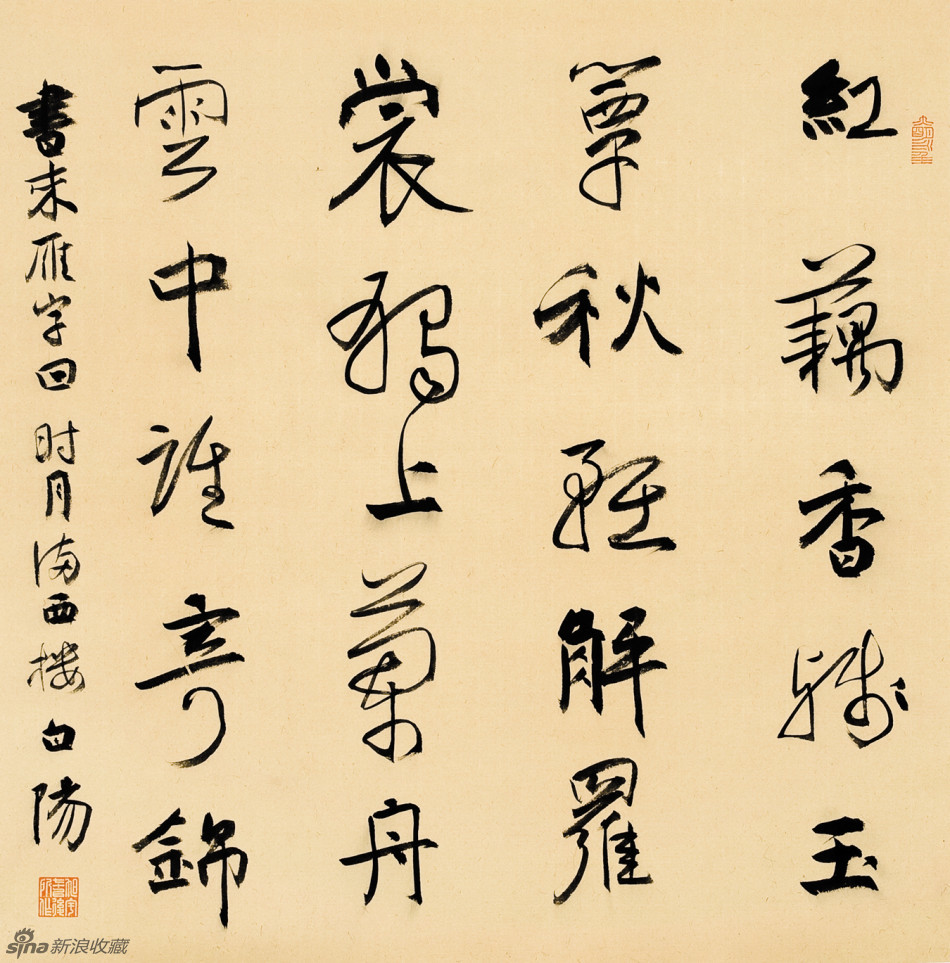 紅藕香殘玉
簟秋輕解羅
裳獨上蘭舟
雲中誰寄錦
書来雁字回时月满西楼 白陽
sina新浪收藏